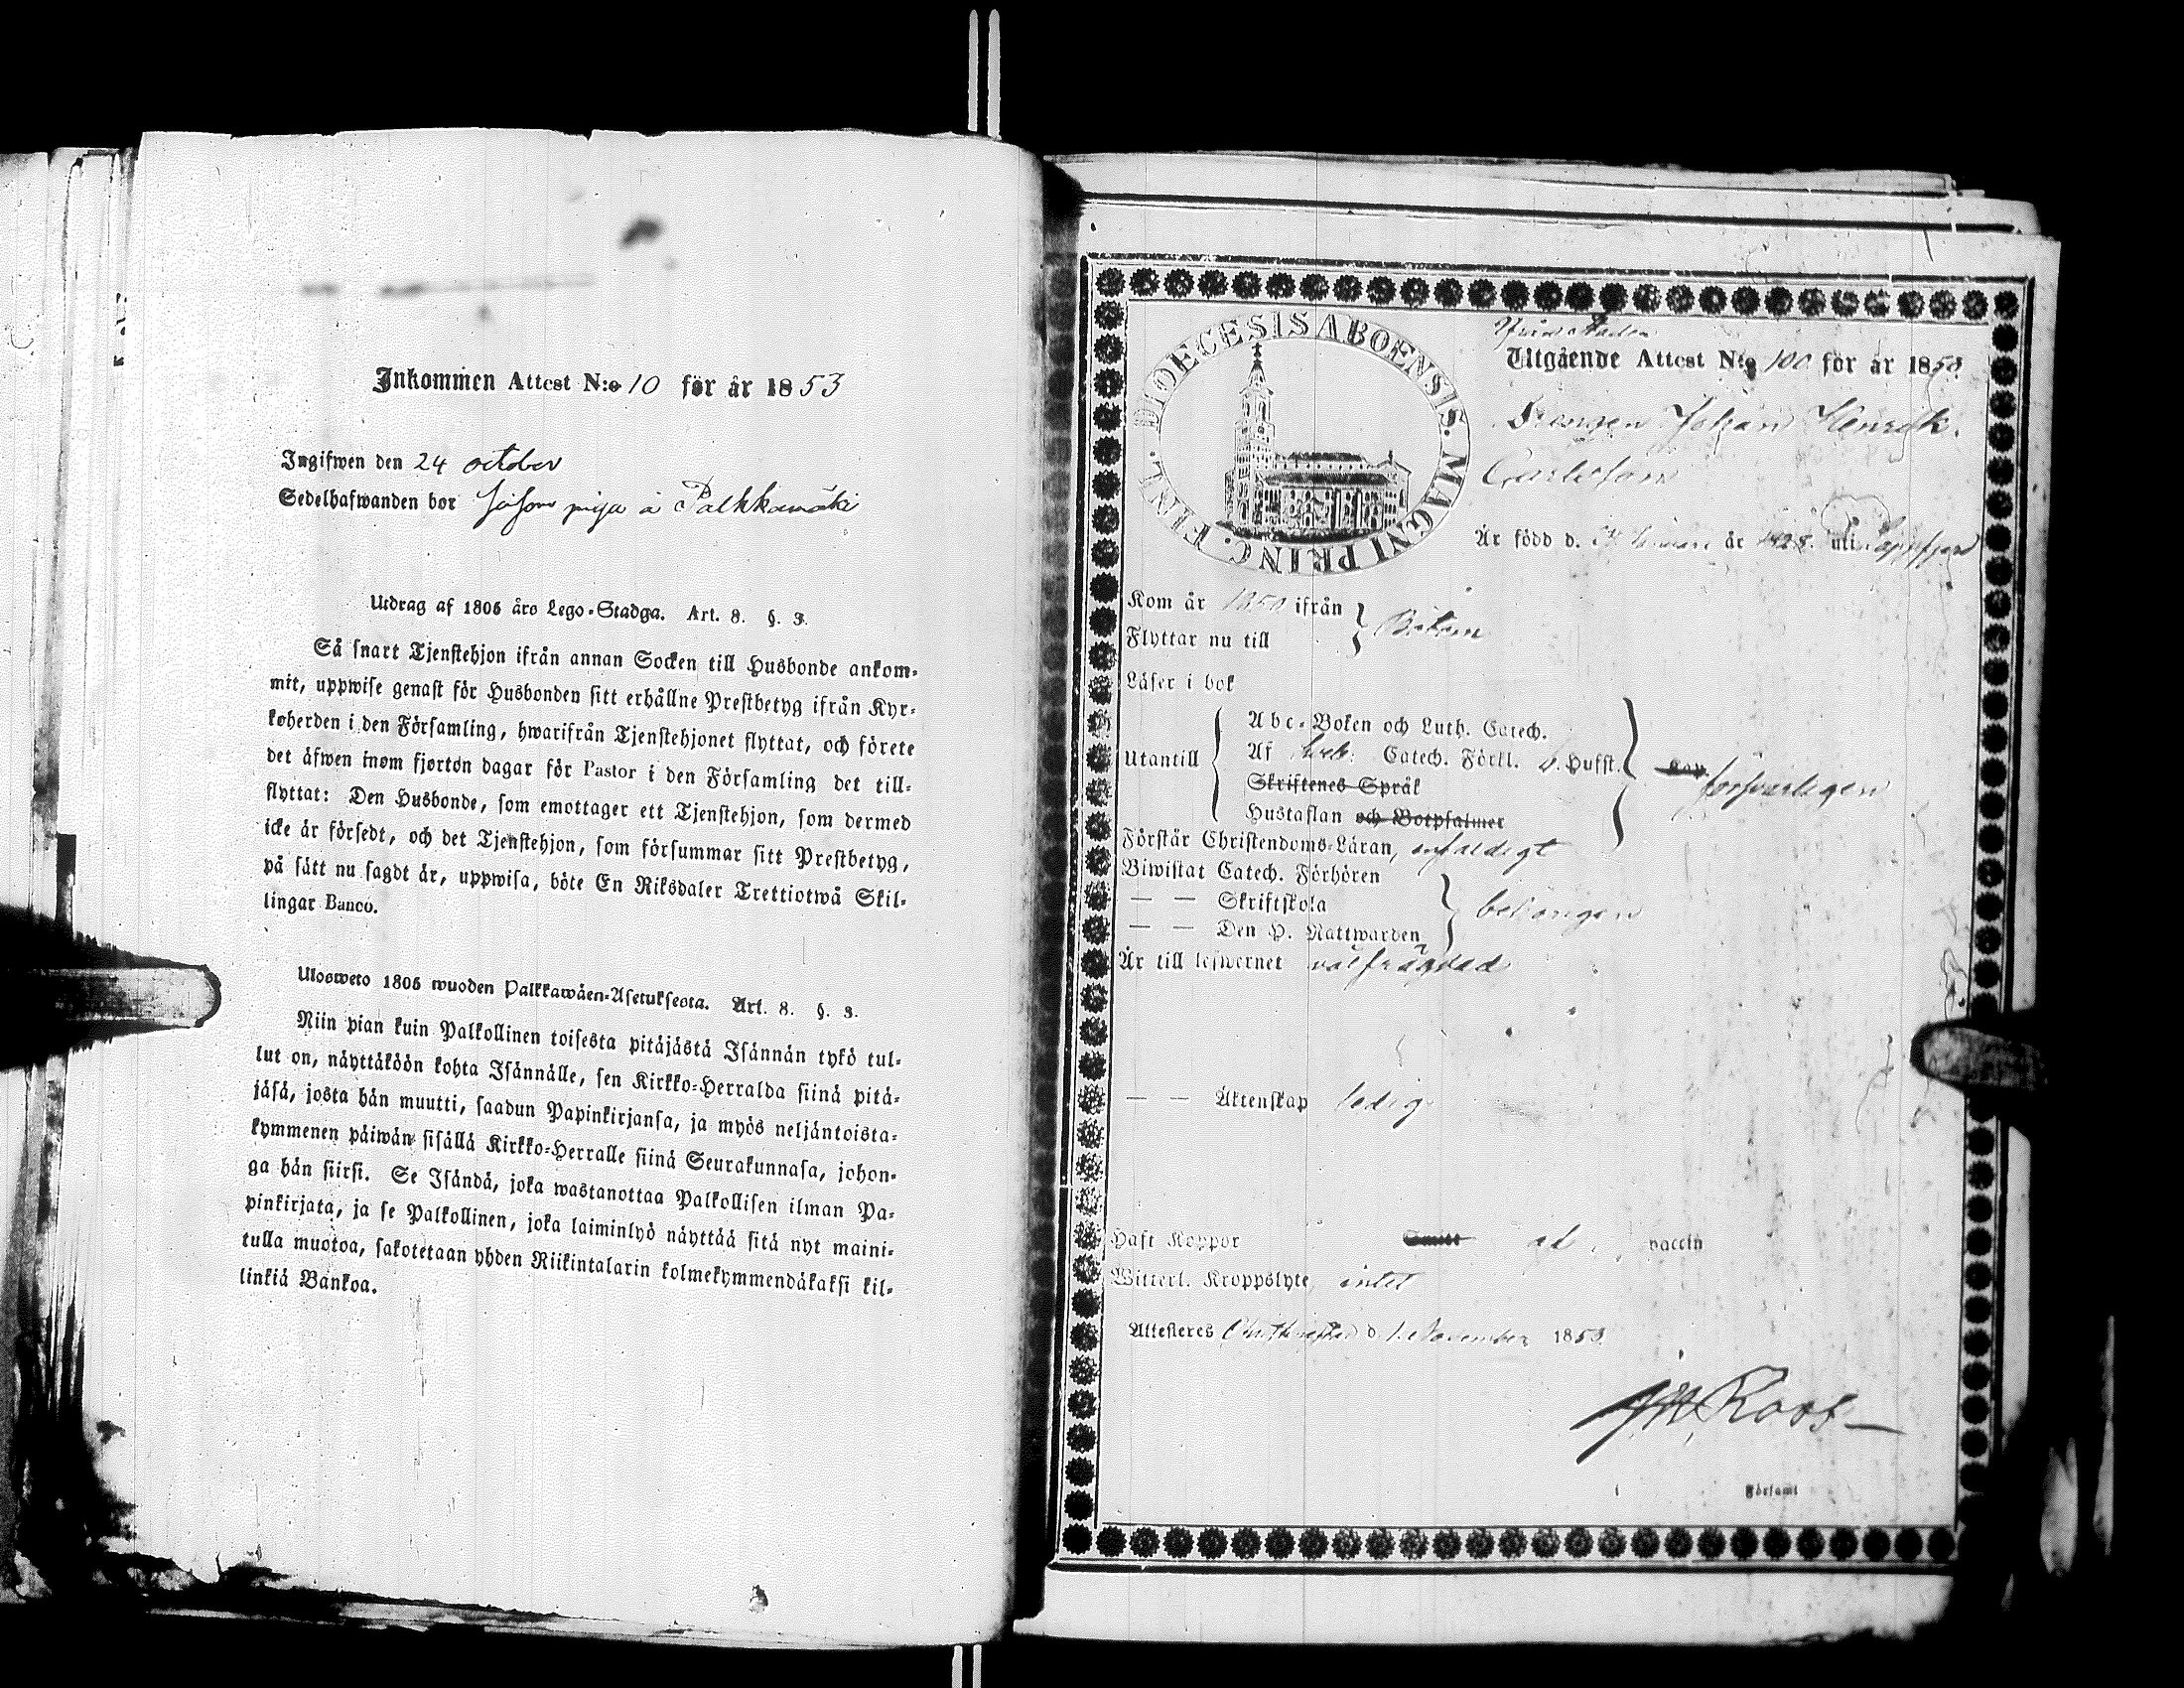 Inkommen Attest N:o 10 för år 1853
Ingifwen den 24 october
Sedelhafwanden bor såsom piga å Palkkamäki
Utdrag af 1805 års Lego-Stadga. Art. 8. §. 3.
Så snart Tjenstehjon ifrån annan Socken till Husbonde ankom-
mit, uppwise genast för Husbonden sitt erhållne Prestbetyg ifrån Kyr-
koherden i den Församling, hwarifrån Tjenstehjonet flyttat, och förete
det äfwen inom fjorton dagar för Pastor i den Församling det till-
flyttat: Den Husbonde, som emottager ett Tjenstehjon, som dermed
icke är försedt, och det Tjenstehjon, som försummar sitt Prestbetyg,
på sätt nu sagdt är, uppwisa, böte En Riksdaler Trettiotwå Skil-
lingar Banco.
Ulosweto 1805 wuoden Palkkawäen-Asetuksesta. Art. 8. §. 3.
Niin pian kuin Palkollinen toisesta pitäjästä Isännän tykö tul-
lut on, näyttäköön kohta Isännälle, sen Kirkko-Herralda siinä pitä-
jäsä, josta hän muutti, saadun Papinkirjansa, ja myös neljäntoista-
kymmenen päiwän sisällä Kirkko-Herralle siinä Seurakunnasa, johon-
ga hän siirsi. Se Isändä, joka wastanottaa Palkollisen ilman Pa-
pinkirjata, ja se Palkollinen, joka laiminlyö näyttää sitä nyt maini-
tulla muotoa, sakotetaan yhden Riikintalarin kolmekymmendäkaksi kil-
linkiä Bankoa.
DIOECESIS ABOENSIS. MAGNI PRINC. FINL.
Ifrån Staden
Utgående Attest N:o 100 för år 1853
Drengen Johan Henrik
Carlsson
Är född d. år 1828 uti Lappfjerd
Kom år 1850 ifrån
Flyttar nu till
Bötom
Läser i bok
Utantill
Abc-Boken och Luth. Catech.
Af Catech. Förkl. Husst.
Skriftenes Språk
Hustaflan och Botpsalmer
försvarligen
Förstår Christendoms-Läran, enfaldigt
Biwistat Catech. Förhören
— — Skriftskola
— — Den H. Nattwarden
behörigen
Är till lefwernet välfrägdad
— — Äktenskap ledig
Haft Koppor Smitt vaccin
Witterl. Kroppslyte, intet
Attesteras Christinestad d 1. November 1853
Roos
Församl